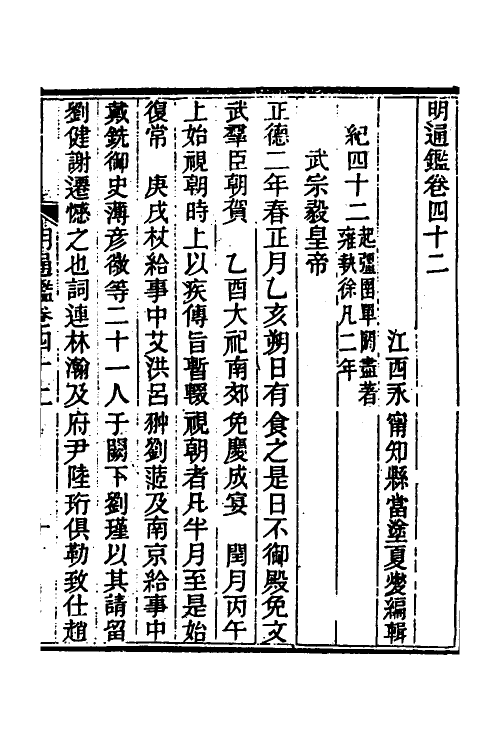 明通鑑卷四十二
江西永甯知縣當塗夏燮編輯
紀四十二起彊圉單閼盡著雍執徐凡二年
武宗毅皇帝
正德二年春正月乙亥朔日有食之是日不御殿免文
武羣臣朝賀　乙酉大祀南郊免慶成宴　閏月丙午
上始視朝時上以疾傳旨暫輟視朝者凡半月至是始
復常　庚戌杖給事中艾洪呂翀劉蒞及南京給事中
戴銑御史薄彥徽等二十一人于闕下劉瑾以其請留
劉健謝遷憾之也詞連林瀚及府尹陸珩俱勒致仕趙
明通鑑卷四十二